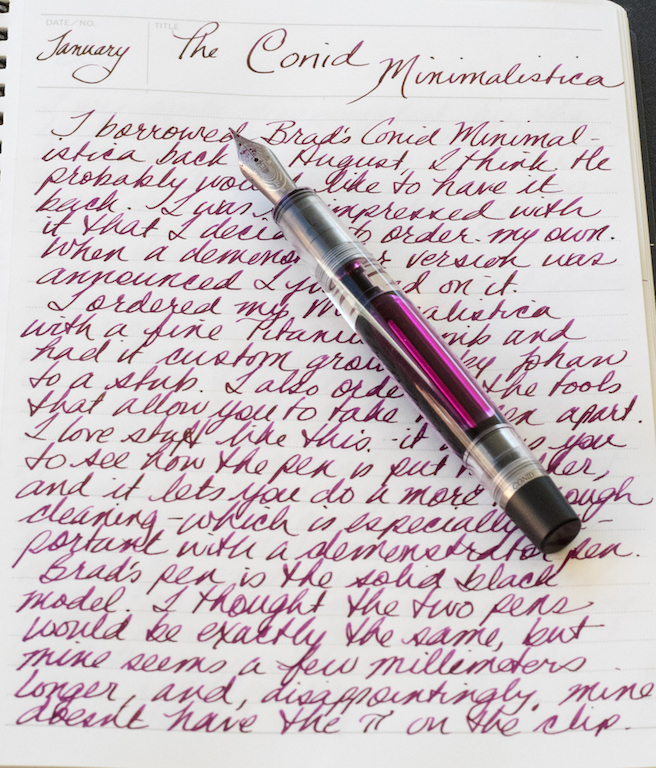 DATE/NO. TITLE
January The Conid Minimalistica
I borrowed Brad's Conid Minimal-
istica back August, I think he
probably like to have it
back. I was impressed with
it that I to order my own.
When a version was
announced I on it.
I ordered my
with a fine nib and
had it custom by Johan
to a stub. I also the tools
that allow you to take apart.
I love stuff like this - it you
to see how the pen is put
and it lets you do a more
cleaning - which is especially
portant with a demonstrator pen.
Brad's pen is the solid black
model. I thought the two pens
would be exactly the same, but
mine seems a few millimeters
longer, and, disappointingly, mine
doesn't have the π on the clip.